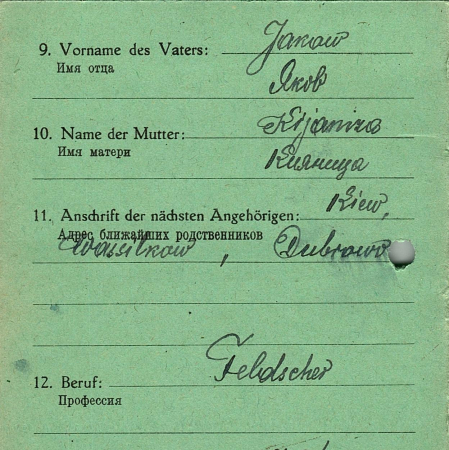 9. Vorname des Vaters: Jakow
Имя отца
Яков
10. Name der Mutter: Kijaniza
Имя матери
Кияница
11. Anschrift der nächsten Angehörigen: Kiew,
Адрес ближайших родственников
Wassilkow , Dubrowo
12. Beruf: Feldscher
Профессия